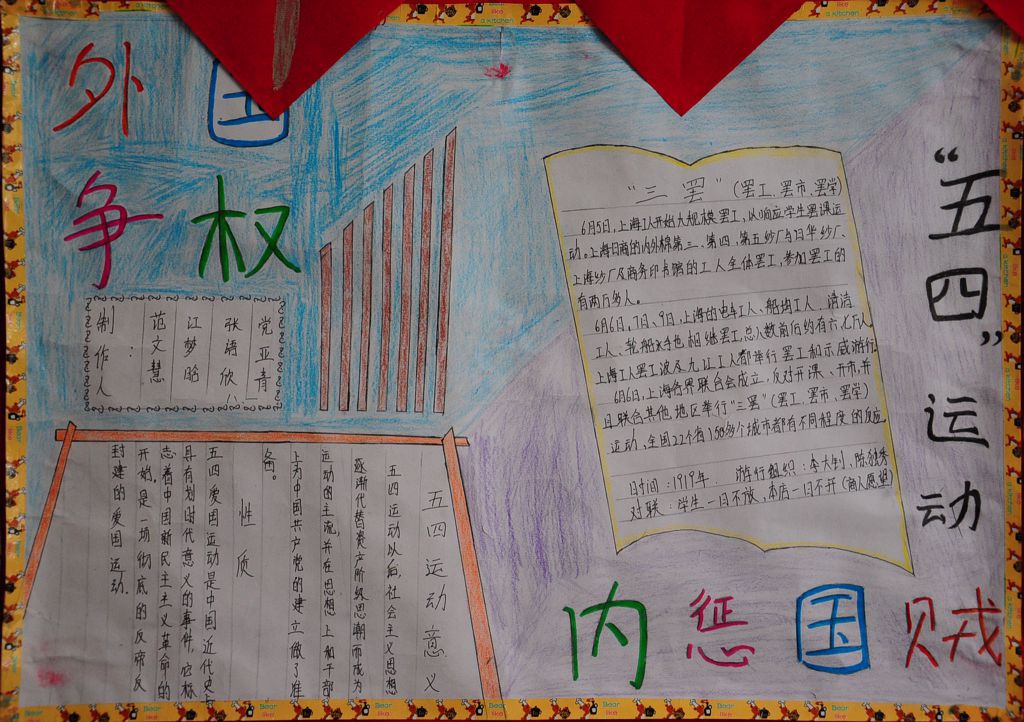 外国
争权
制作人：
范文慧
江梦昭
张语欣
党亚青
“五四”运动
“三罢”（罢工、罢市、罢学）
6月5日，上海工人开始大规模罢工，以响应学生罢课运
动。上海日商的内外棉第三、第四、第五纱厂、日华纱厂、
上海纱厂及商务印书馆的工人全体罢工，参加罢工的
有两万多人。
6月6日、7日、9日，上海的电车工人、船坞工人、清洁
工人、轮船水手也相继罢工，总人数前后约有六、七万人
上海工人罢工波及九江工人都举行罢工和示威游行
6月6日，上海各界联合会成立，反对开课、开市，并
且联合其他地区举行“三罢”（罢工、罢市、罢学）
运动，全国22个省150多个城市都有不同程度的反应
时间：1919年 游行组织：李大钊、陈独秀
对联：学生一日不放，本店一日不开（商人愿望）
五四运动意义
五四运动以后，社会主义思想
逐渐代替资产阶级思潮而成为
运动的主流，并在思想上和干部
上为中国共产党的建立做了准
备。
性质
五四爱国运动是中国近代史上
具有划时代意义的事件，它标
志着中国新民主主义革命的
开始，是一场彻底的反帝反
封建的爱国运动。
内惩国贼